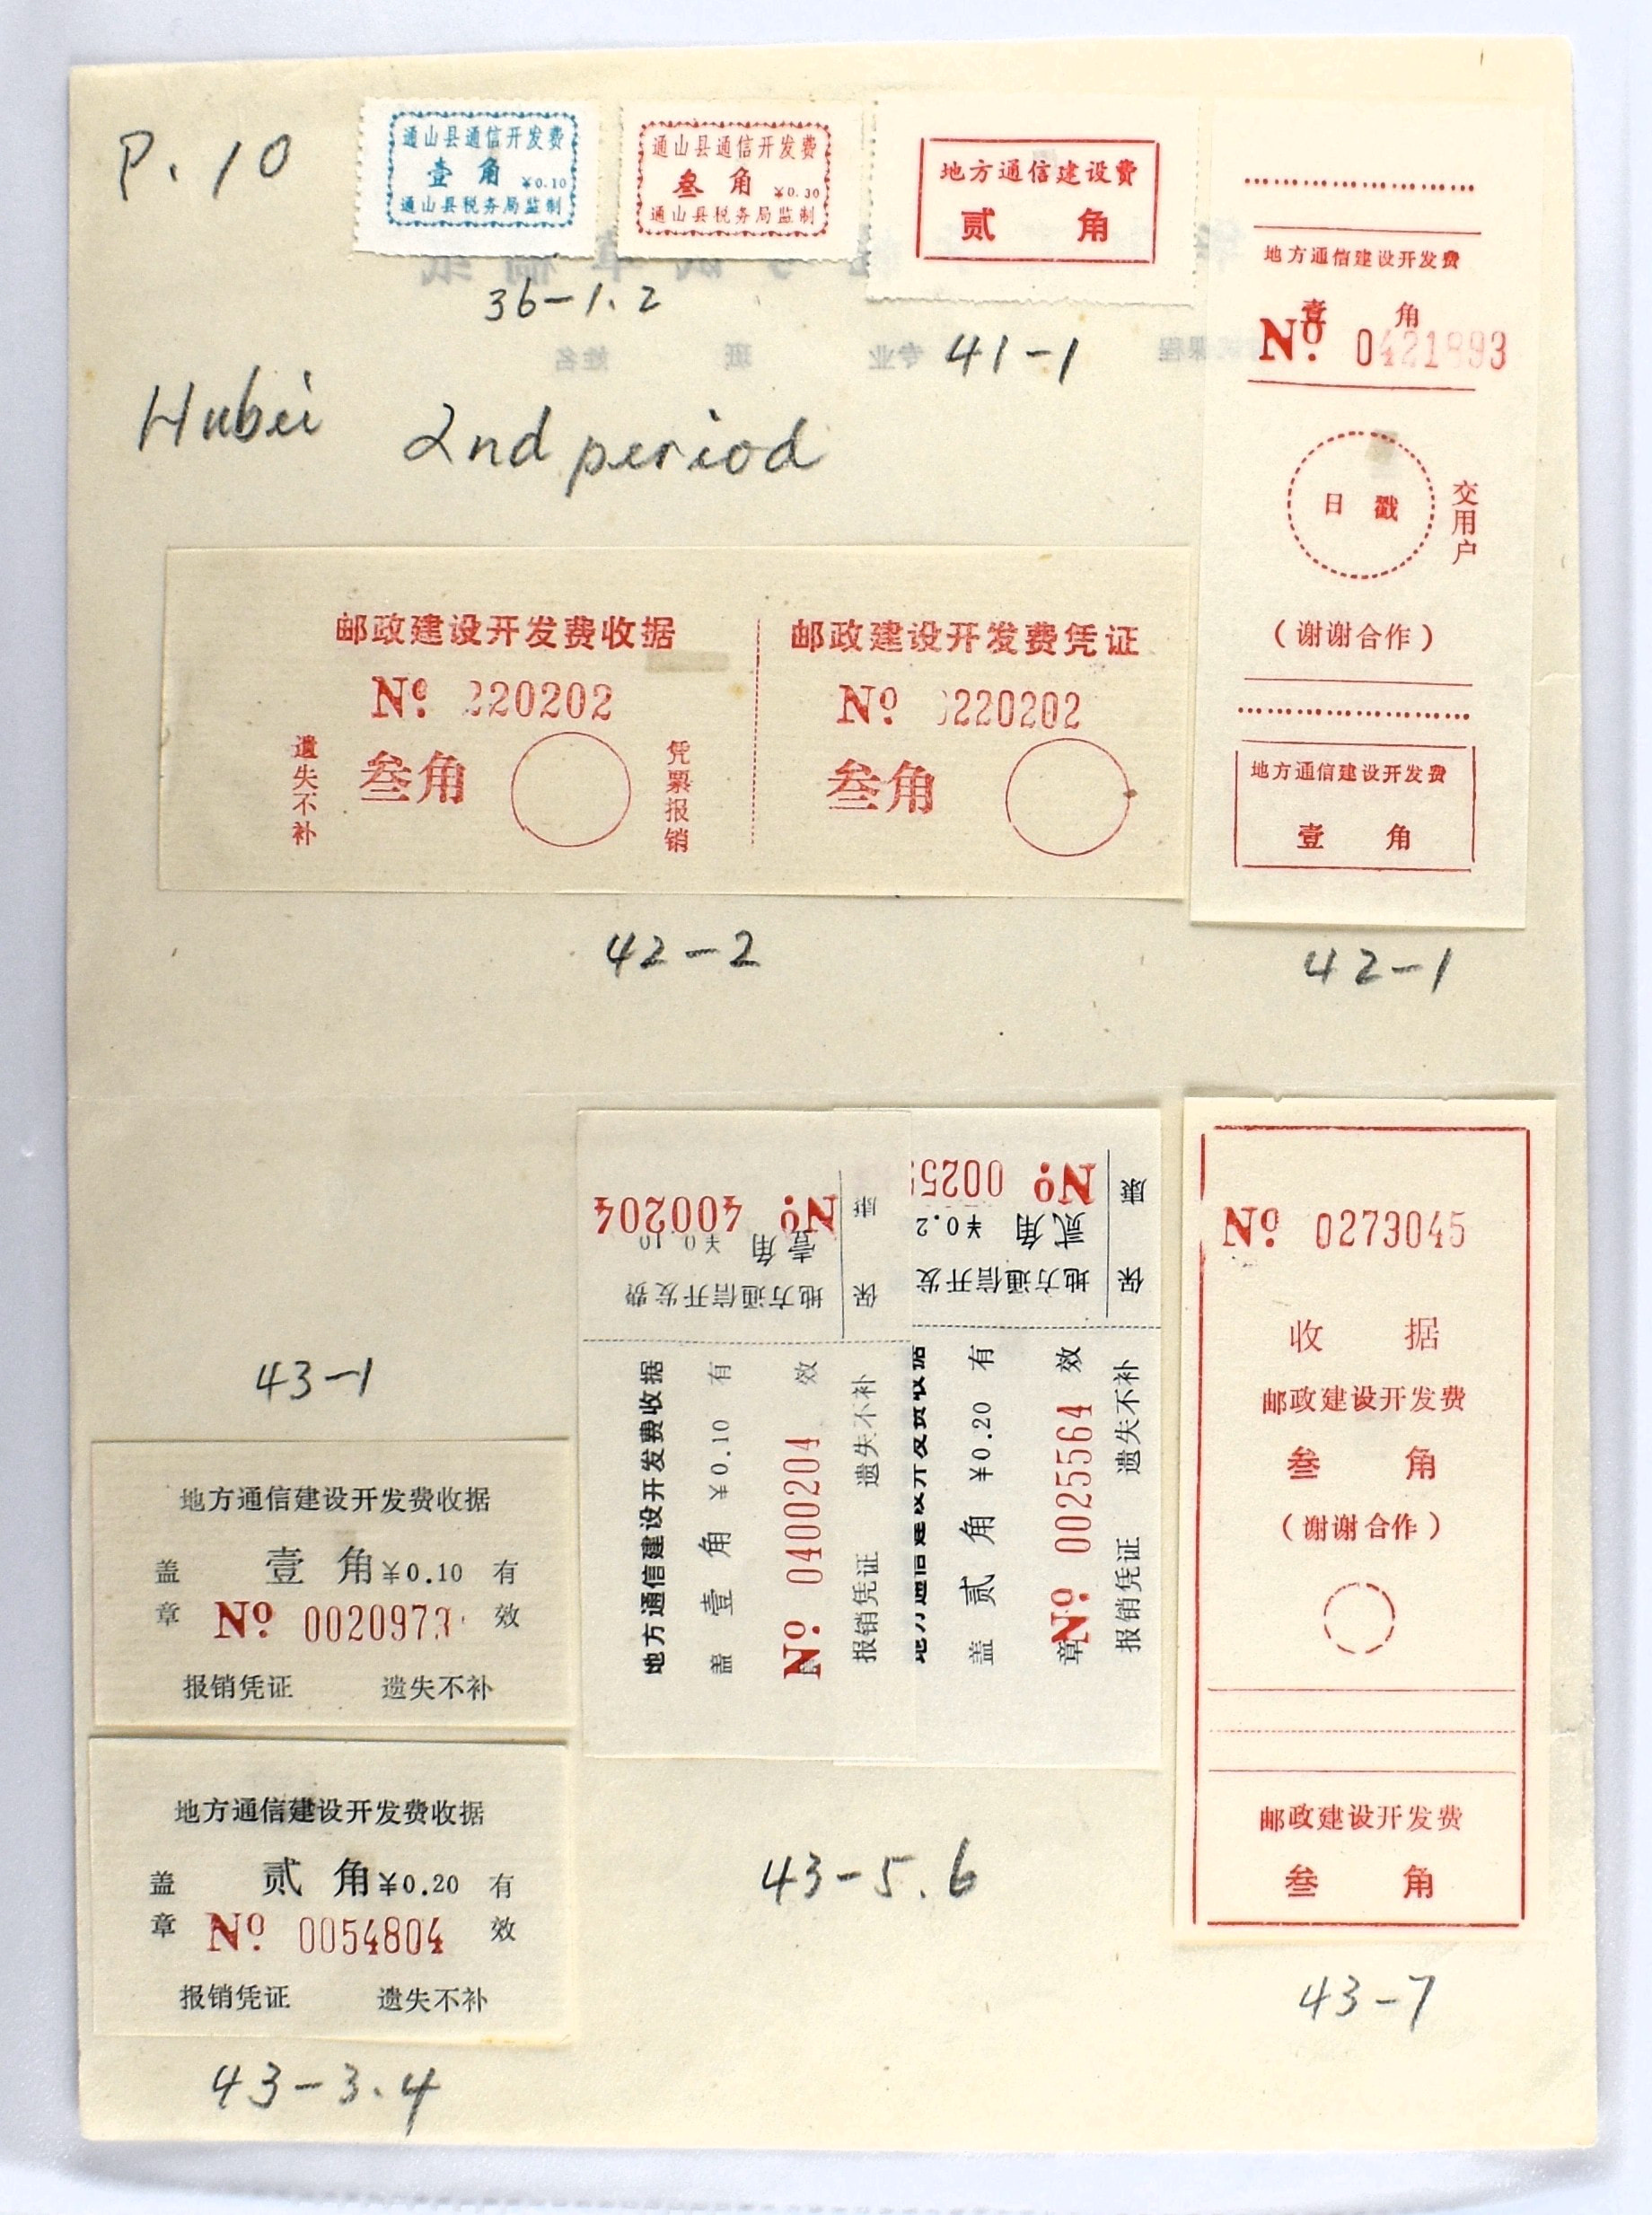 P. 10
通山县通信开发费
壹角 ¥0.10
通山县税务局监制
通山县通信开发费
叁角 ¥0.30
通山县税务局监制
36-1.2
地方通信建设费
贰角
41-1
Hubei 2nd period
地方通信建设开发费
壹角
No. 0421893
日戳
交用户
(谢谢合作)
地方通信建设开发费
壹角
42-1
邮政建设开发费收据
No. 220202
遗失不补
叁角
凭票报销
邮政建设开发费凭证
No. 220202
叁角
42-2
43-1
地方通信建设开发费收据
盖 壹角¥0.10 有
章 No. 0020973 效
报销凭证 遗失不补
地方通信建设开发费收据
盖 贰角¥0.20 有
章 No. 0054804 效
报销凭证 遗失不补
43-3.4
No. 400204
壹角 ¥0.10
地方通信开发费
保康
地方通信建设开发费收据
盖 壹角 ¥0.10 有
No. 0400204 效
报销凭证 遗失不补
No. 0025
贰角 ¥0.2
地方通信开发
保康
地方通信建设开发费收据
盖 贰角 ¥0.20 有
章 No. 0025564 效
报销凭证 遗失不补
43-5.6
No. 0273045
收据
邮政建设开发费
叁角
(谢谢合作)
邮政建设开发费
叁角
43-7